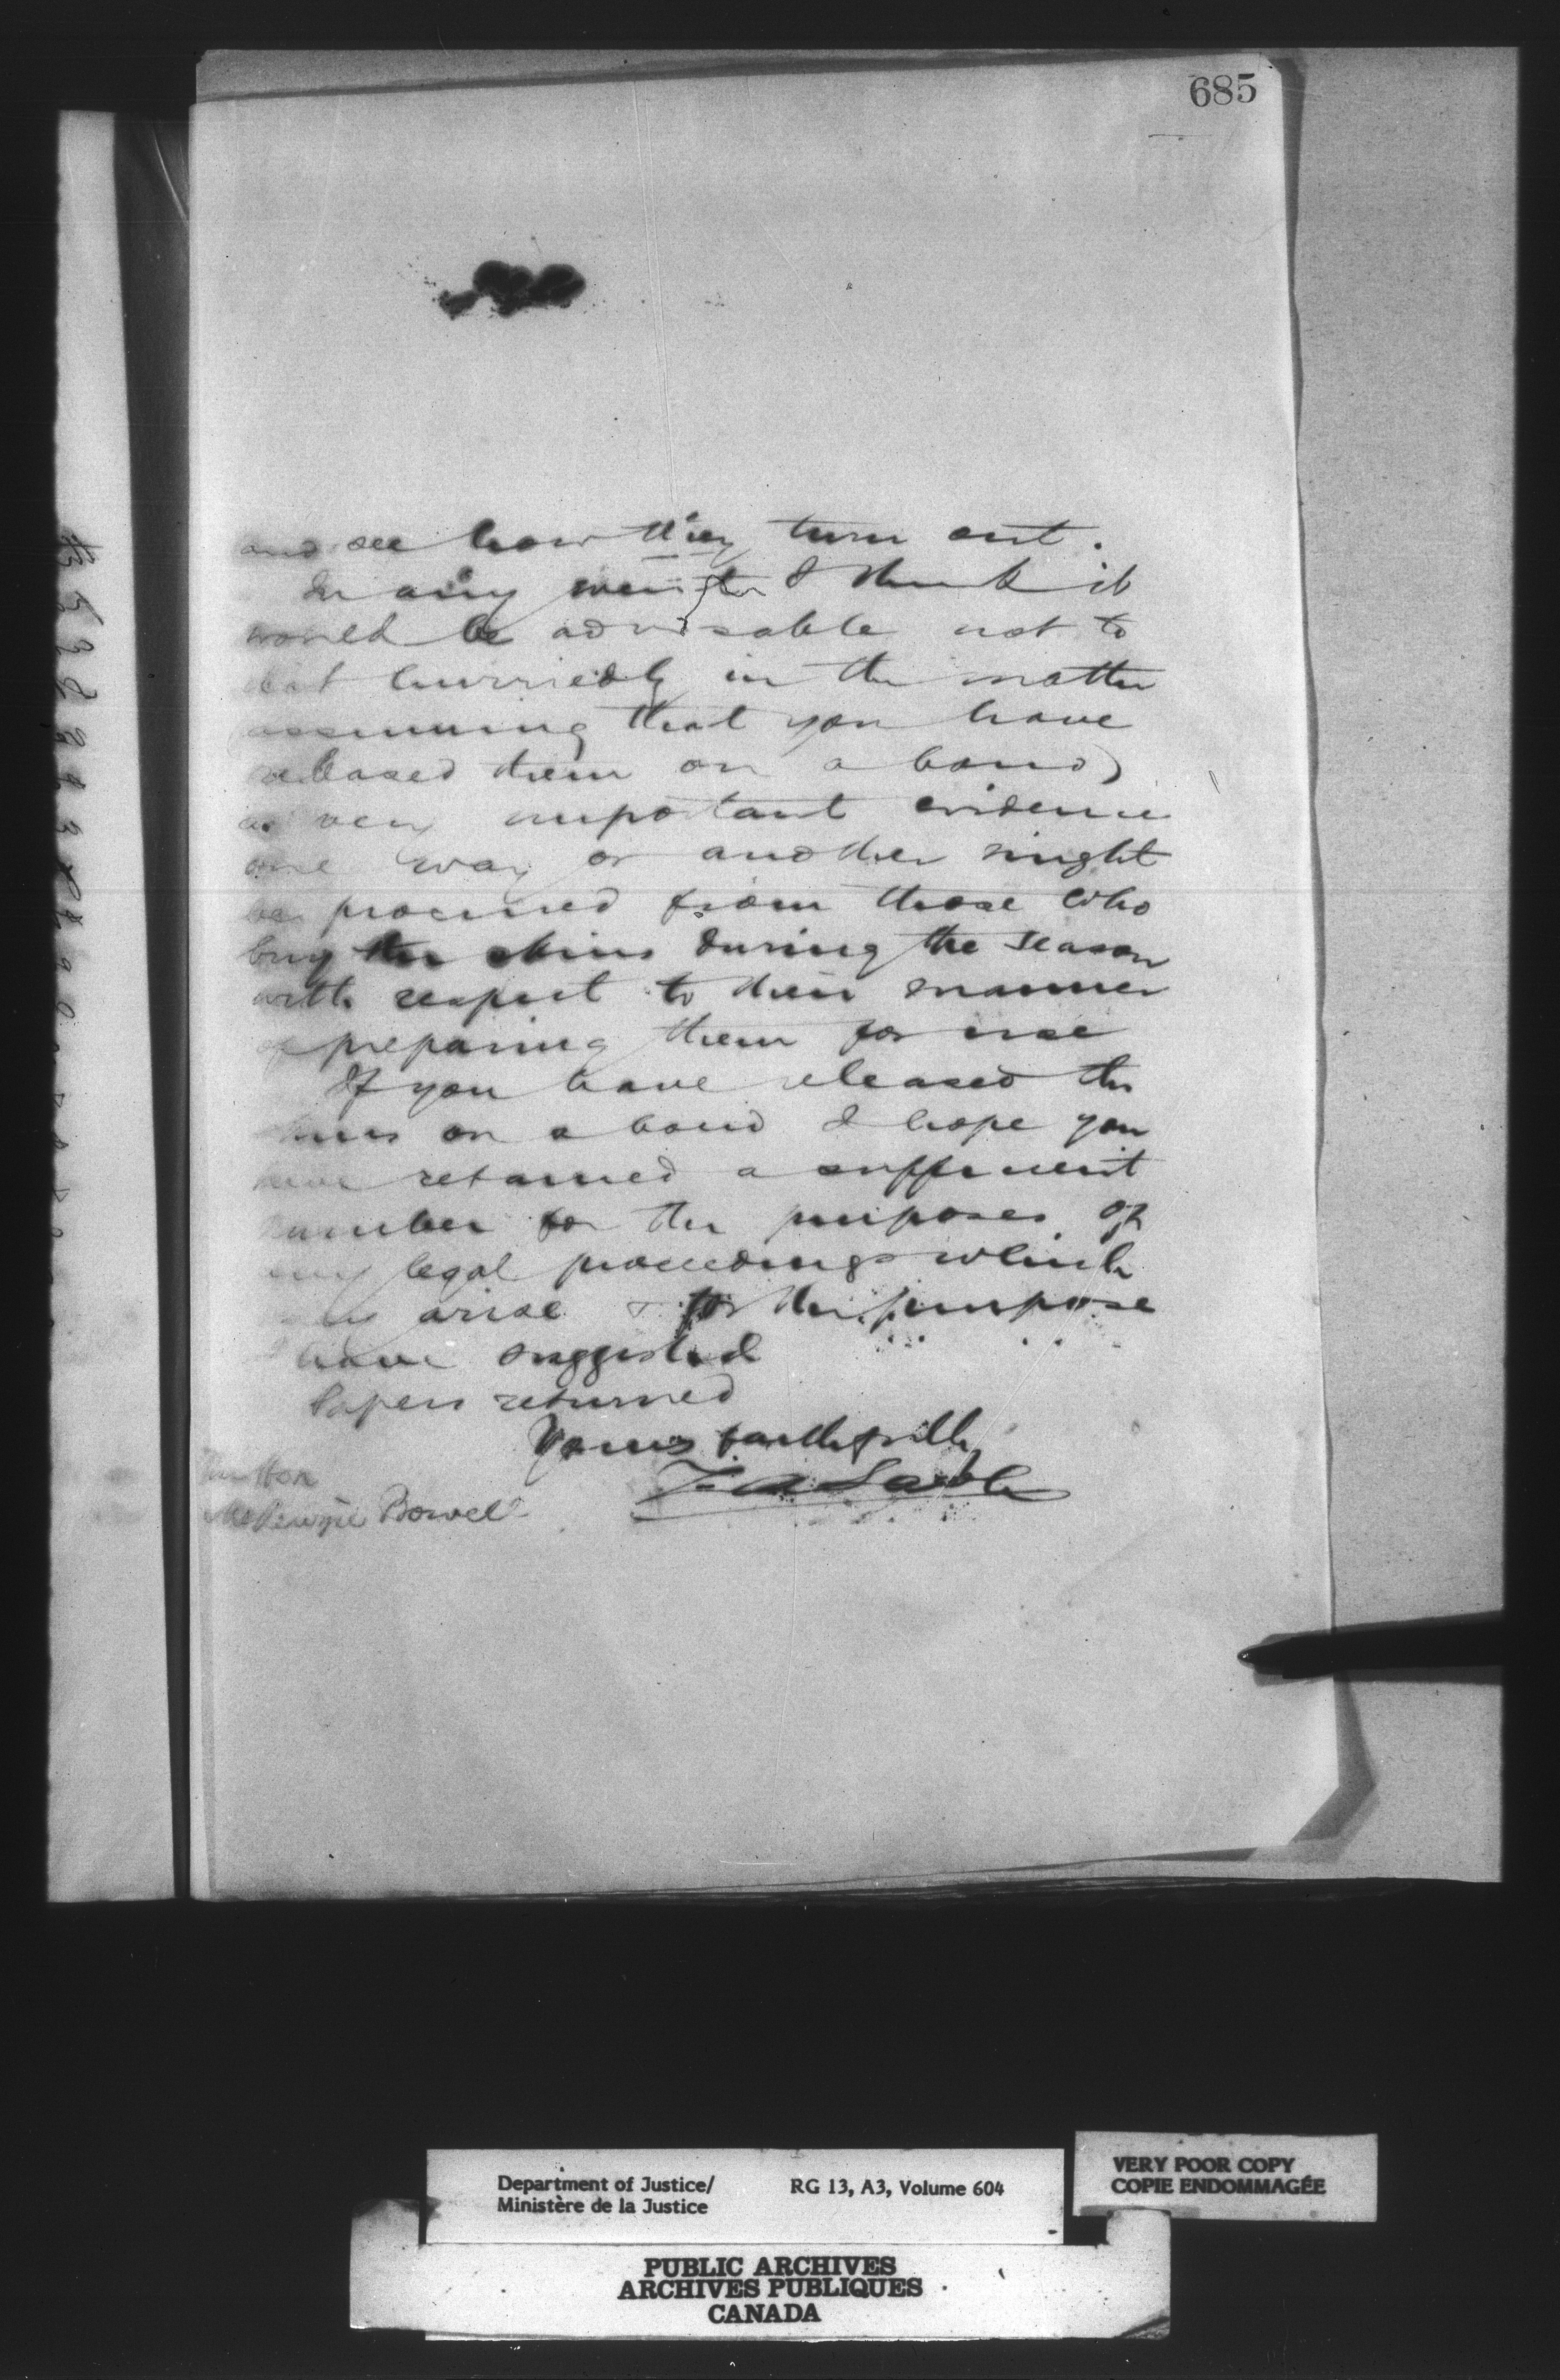 685
and see how they turn out.
In any event I think it
would be advisable not to
act hurriedly in the matter
assuming that you have
released them on a bond)
as very important evidence
one way or another might
be procured from those who
buy the skins during the season
with respect to their manner
of preparing them for use
If you have released the
skins on a bond I hope you
have retained a sufficient
number for the purposes of
any legal proceedings which
may arise & for the purpose
I have suggested
Papers returned
Yours faithfully
Z. A. Lash
The Hon
McKenzie Bowell
Department of Justice/
Ministère de la Justice
RG 13, A3, Volume 604
VERY POOR COPY
COPIE ENDOMMAGÉE
PUBLIC ARCHIVES
ARCHIVES PUBLIQUES
CANADA